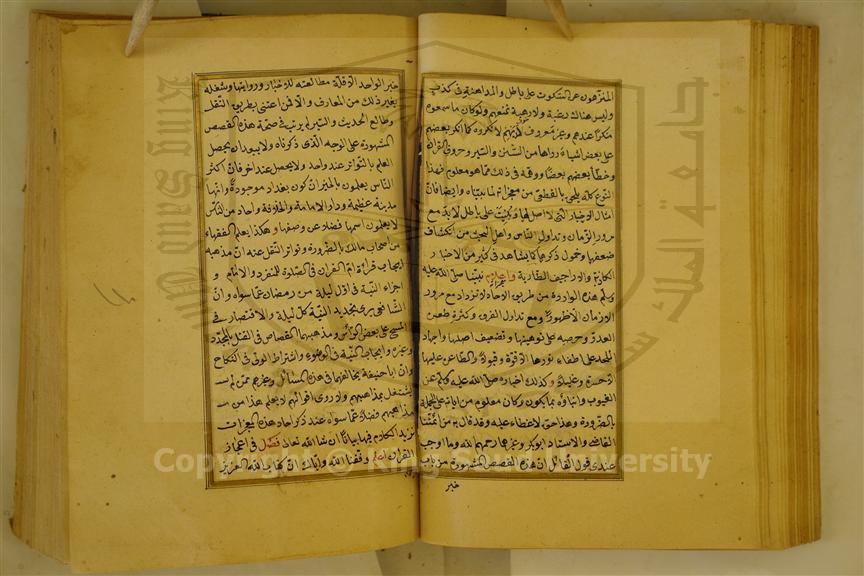 المنزهون عن السكوت على باطل والمداهنة فى كذب
وليس هناك رغبة ولا رهبة تمنعهم ولو كان ما سمعوه
منكرا عندهم وغير معروف لديهم لانكروه كما انكر بعضهم
على بعض اشياء رواها من السنن والسير وحروف القرآن
وخطأ بعضهم بعضا ووهمه فى ذلك مما هو معلوم فهذا
النوع كله يلحق بالقطعى من معجزاته لما بيناه وايضا فان
امثال الاخبار التى لا اصل لها وبنيت على باطل لا بد مع
مرور الازمان وتداول الناس واهل البحث من انكشاف
ضعفها وخمول ذكرها كما يشاهد فى كثير من الاخبار
الكاذبة والاراجيف الطارية واعلام نبينا صلى الله عليه
وسلم هذه الواردة من طريق الآحاد لا تزداد مع مرور
الازمان الا ظهورا ومع تداول الفرق وكثرة طعن
العدو وحرصه على توهينها وتضعيف اصلها واجهاد
الملحد على اطفاء نورها الا قوة وقبولا والطاعن عليها
الا حسرة وغليلا وكذلك اخباره صلى الله عليه وسلم عن
الغيوب وانباؤه بما يكون وكان معلوم من آياته على الجملة
بالضرورة وهذا حق لا غطاء عليه وقد قال به من ائمتنا
القاضى والاستاد ابو بكر وغيرهما رحمهم الله وما اوجب
عندى قول القائل ان هذه القصص المشهورة من باب
خبر
خبر الواحد الا قلة مطالعته للاخبار وروايتها وشغله
بغير ذلك من المعارف والا فمن اعتنى بطرق النقل
وطالع الحديث والسير لم يرتب فى صحة هذه القصص
المشهورة على الوجه الذى ذكرناه ولا يبعد ان يحصل
العلم بالتواتر عند واحد ولا يحصل عند آخر فان اكثر
الناس يعلمون بالخبر ان كون بغداد موجودة وانها
مدينة عظيمة ودار الامامة والخلافة وآحاد من الناس
لا يعلمون اسمها فضلا عن وصفها وهكذا يعلم الفقهاء
من اصحاب مالك بالضرورة وتواتر النقل عنه ان مذهبه
ايجاب قراءة ام القرآن فى الصلوة للمنفرد والامام و
اجزاء النية فى اول ليلة من رمضان عما سواه وان
الشافعى يرى تجديد النية كل ليلة والاقتصار فى
المسح على بعض الرأس ومذهبهما القصاص فى القتل بالمحدد
وغيره وايجاب النية فى الوضوء واشتراط الولى فى النكاح
وان ابا حنيفة يخالفهما فى هذه المسائل وغيرهم ممن لم
يشتغل بمذاهبهم ولا روى اقوالهم لا يعلم هذا من
مذاهبهم فضلا عما سواه عند ذكرنا آحاد هذه المعجزات
نزيد الكلام فيها بيانا ان شاء الله تعالى فصل فى اعجاز
القرآن اعلم وفقنا الله واياك ان كتاب الله العزيز
Copyright © King Saud University
King Saud University
جامعة الملك سعود